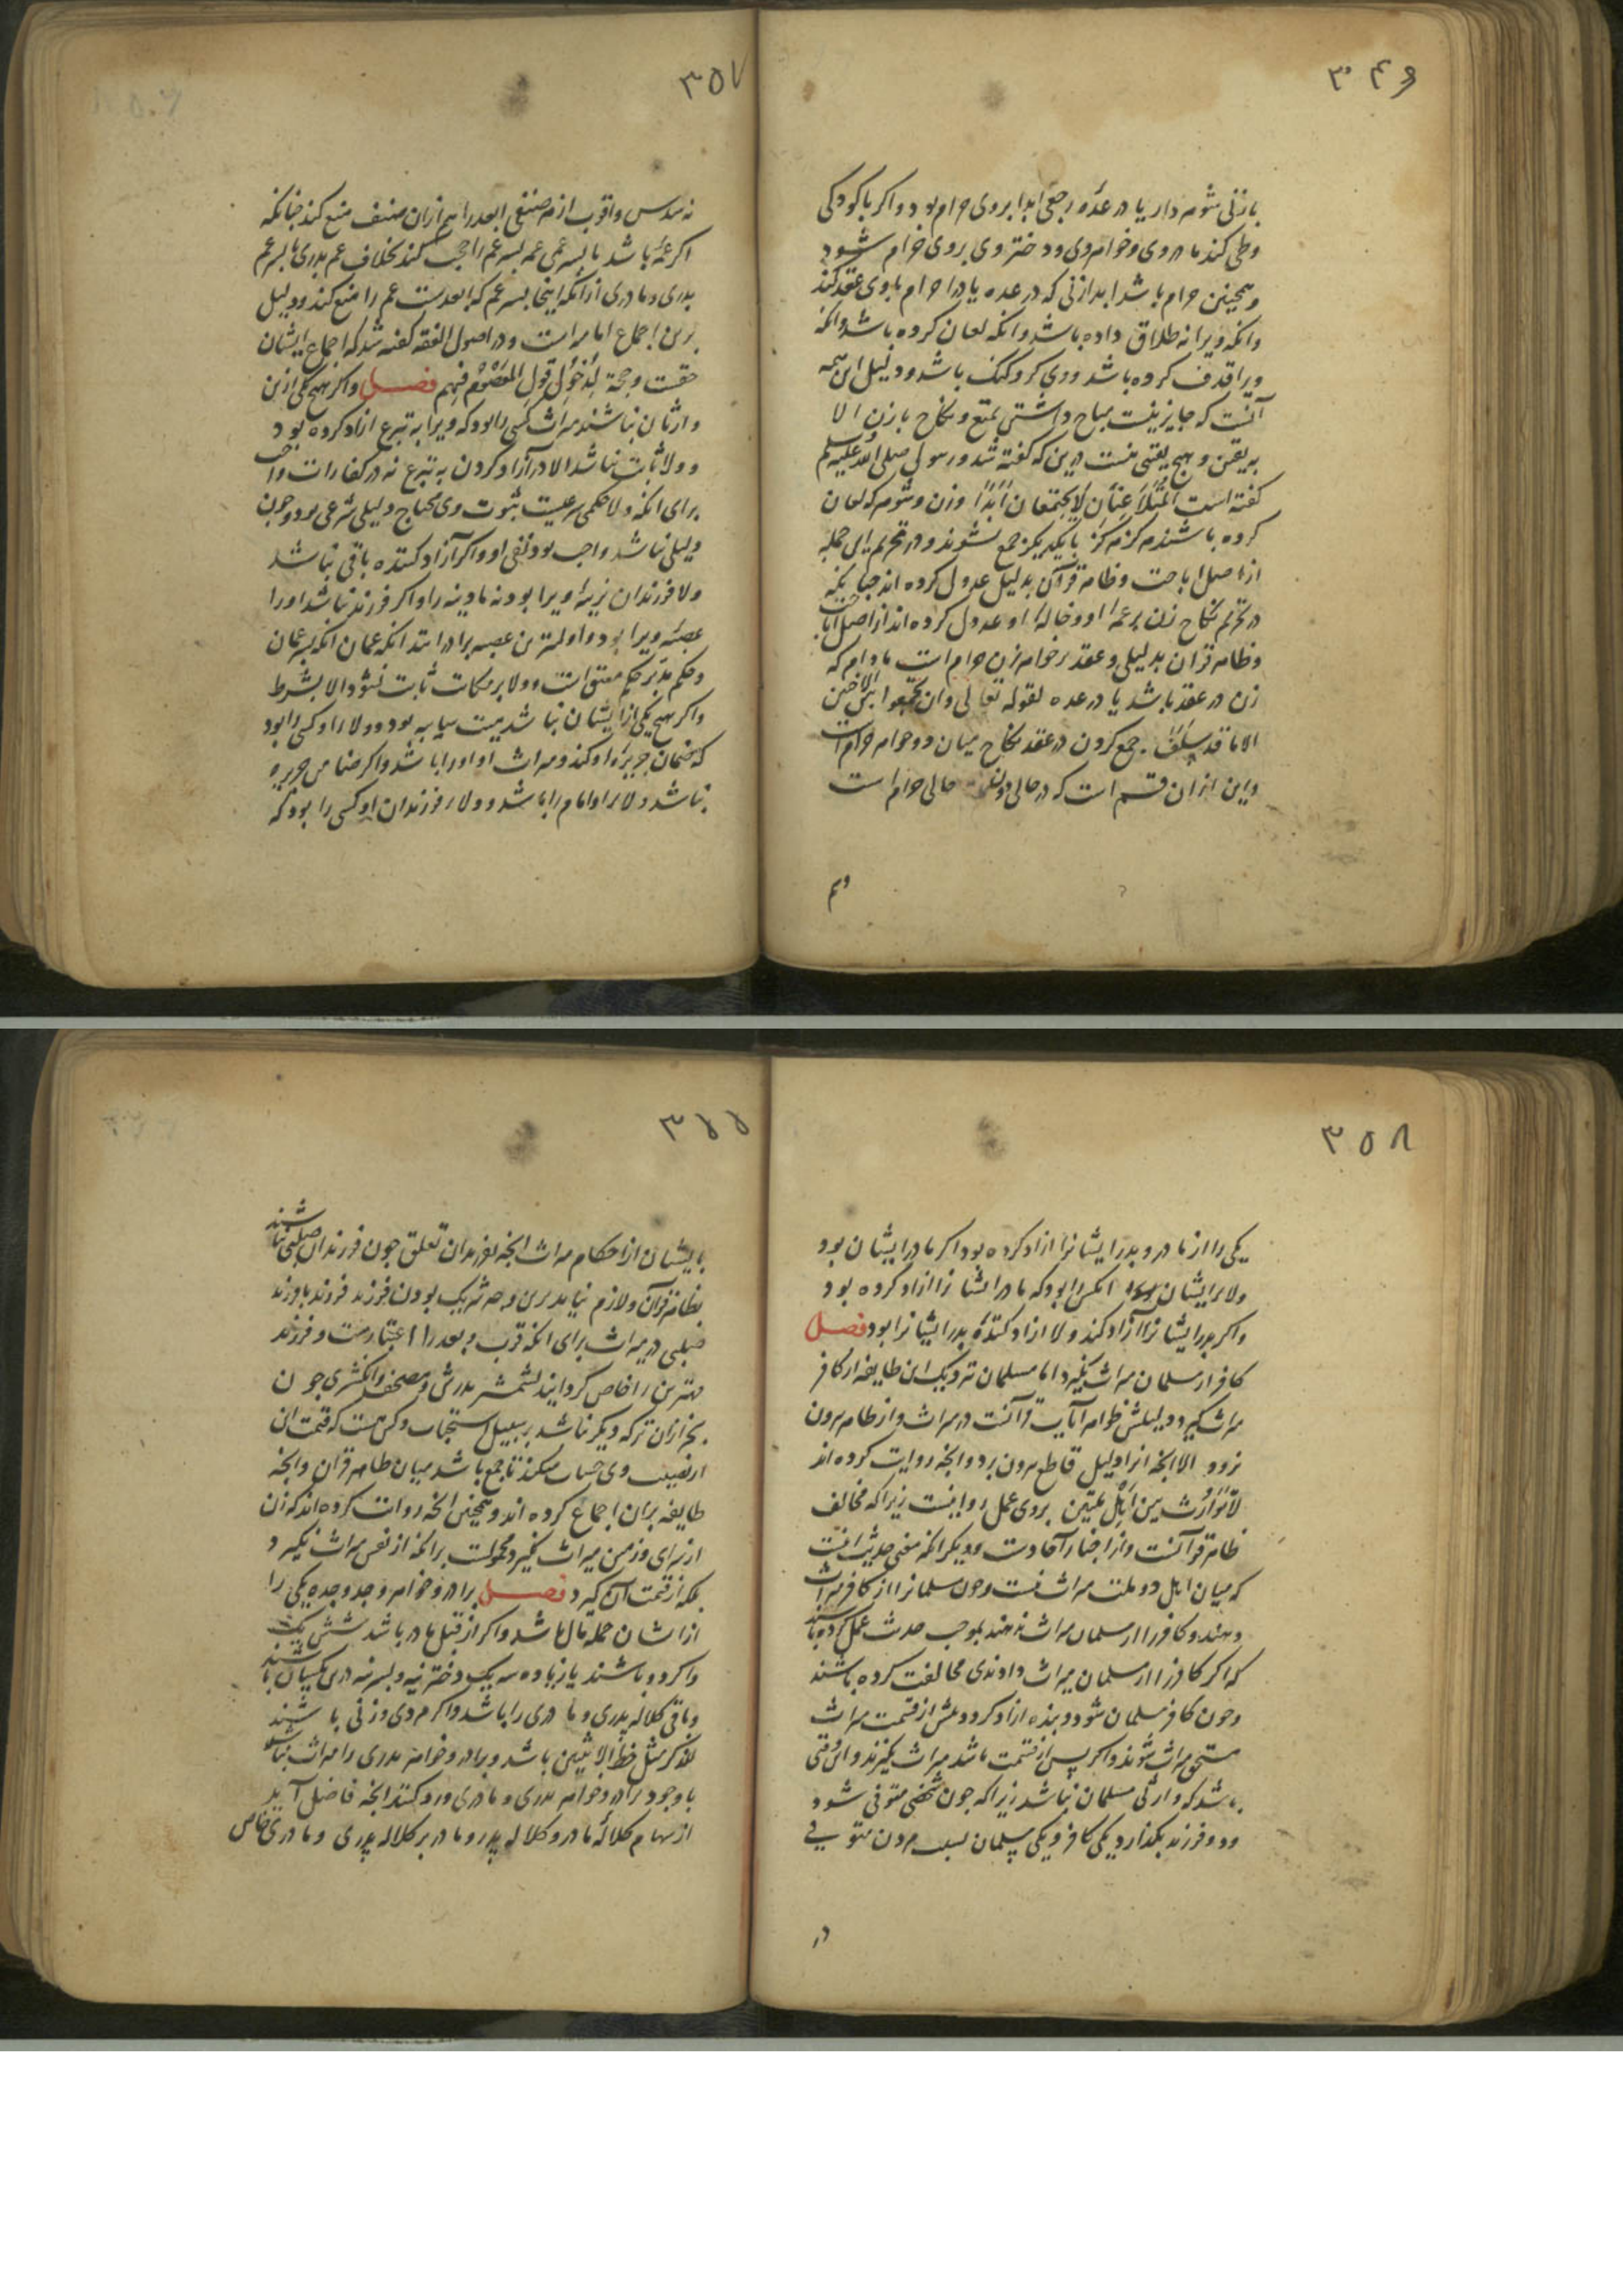 ۳۴۹
با زنی شوهر دار یا در عده رجعی ابدا بروی حرام بود و اکر با کودکی
وطی کند مادر وی و خواهر وی و دختر وی بروی حرام شود
و همچنین حرام باشد ابدا زنی که در عده یا در احرام با وی عقد کند
و انکه ویرا نه طلاق داده باشد و انکه لعان کرده باشد و انکه
ویرا قذف کرده باشد و وی کر و کنک باشد و دلیل این همه
آنست که جایز نیست مباح داشتن تمتع و نکاح با زن الا
به یقین و هیچ یقینی نیست درین که کفته شد و رسول صلی الله علیه و سلم
کفته است المتلاعنان لا یجتمعان ابدا و زن و شوهر که لعان
کرده باشند هرکز هرکز با یکدیکر جمع نشوند و در تحریم این جمله
از اصل اباحت و ظاهر قرآن بدلیل عدول کرده اند چنانکه
در تحریم نکاح زن بر عمه او و خاله او عدول کرده اند از اصل اباحت
و ظاهر قرآن بدلیلی و عقد بر خواهر زن حرام است مادام که
زن در عقد باشد یا در عده لقوله تعالی و ان تجمعوا بین الاختین
الا ما قد سلف جمع کردن در عقد نکاح میان دو خواهر حرام است
و این از ان قسم است که در حالی دون حالی حرام است
وهم
۳۵۷
نه سدس و اقرب از هر صنفی ابعد را هم از ان صنف منع کند چنانکه
اکر عمه باشد با پسر عمی عمه پسر عم را حجب کند بخلاف عم پدری با پسر عم
پدری و مادری از انکه اینجا پسر عم که ابعدست عم را منع کند و دلیل
برین اجماع امامیه است و در اصول الفقه کفته شد که اجماع ایشان
حقست و حجة لدخول قول المعصوم فیهم فصل و اکر هیچ یکی ازین
وارثان نباشند میراث کسی را بود که ویرا به تبرع ازاد کرده بود
و ولا ثابت نباشد الا در آزاد کردن به تبرع نه در کفارات واجب
برای انکه ولا حکمی شرعیست ثبوت وی محتاج دلیلی شرعی بود و چون
دلیلی نباشد واجب بود نفی او و اکر آزاد کننده باقی نباشد
ولا فرزندان نرینه او را بود نه مادینه را و اکر فرزند نباشد او را
عصبه ویرا بود و اولیترین عصبه برادرانند انکه عمان انکه پسر عمان
و حکم مدبر حکم معتق است و ولا بر مکاتب ثابت نشود الا بشرط
و اکر هیچ یکی از ایشان نباشد میت سایبه بود و ولا او کسی را بود
که ضمان جریره او کند و میراث او او را باشد و اکر ضامن جریره
نباشد ولا او امام را باشد و ولا فرزندان او کسی را بود که
۳۵۸
یکی را از مادر و پدر ایشانرا ازاد کرده بود اکر مادر ایشان بود
ولا بر ایشان انکس را بود که مادر ایشانرا ازاد کرده بود
و اکر پدر ایشانرا آزاد کند ولا ازاد کننده پدر ایشانرا بود فصل
کافر از مسلمان میراث نکیرد اما مسلمان نزدیک این طایفه از کافر
میراث کیرد و دلیلش ظواهر آیات قرآنست در میراث و از ظاهر بیرون
نرود الا انچه انرا دلیل قاطع بیرون برد و انچه روایت کرده اند
لا توارث بین اهل ملتین بر وی عمل روا نیست زیرا که مخالف
ظاهر قرآنست و از اخبار آحادست و دیکر انکه معنی حدیث انست
که میان اهل دو ملت میراث نیست و چون مسلمانرا از کافر میراث
دهند و کافر را از مسلمان میراث ندهند بموجب حدیث عمل کرده باشند
که اکر کافر را از مسلمان میراث دادندی مخالفت کرده باشند
و چون کافر مسلمان شود و بنده ازاد کردد پیش از قسمت میراث
مستحق میراث شوند و اکر پس از قسمت باشد میراث نکیرند و این وقتی
باشد که وارثی مسلمان نباشد زیرا که چون شخصی متوفی شود
و دو فرزند بکذارد یکی کافر و یکی مسلمان بسبب مردن متوفی
در
۳۵۵
بایشان از احکام میراث انچه بفرزندان تعلق چون فرزندان صلبی نباشند
بظاهر قرآن و لازم نیاید برین وجه شریک بودن فرزند فرزند با فرزند
صلبی در میراث برای انکه قرب و بعد را اعتبارست و فرزند
مهترین را خاص کردانند بشمشیر پدرش و مصحف و انکشتری چون
بجز ازان ترکه دیکر باشد بر سبیل استحباب و کس هست که قیمت ان
از نصیب وی حساب میکند تا جمع باشد میان ظاهر قرآن و انچه
طایفه بران اجماع کرده اند و همچنین انچه روایت کرده اند که زن
از سرای و زمین میراث نکیرد محمولست بر انکه از نفس میراث نکیرد
بلکه از قیمت آن کیرد فصل برادر و خواهر و جد و جده یکی را
از ایشان جمله مال باشد و اکر از قبل مادر باشد شش یک
و اکر دو باشند یا زیاده سه یک دخترینه و پسرینه دری یکسان باشند
و باقی کلاله پدری و مادری را باشد و اکر مردی و زنی باشند
للذکر مثل حظ الانثیین باشد و برادر و خواهر پدری را میراث نباشد
با وجود برادر و خواهر پدری و مادری و رد کنند انچه فاضل آید
از سهام کلاله مادر و کلاله پدر و مادر بر کلاله پدری و مادری خاص